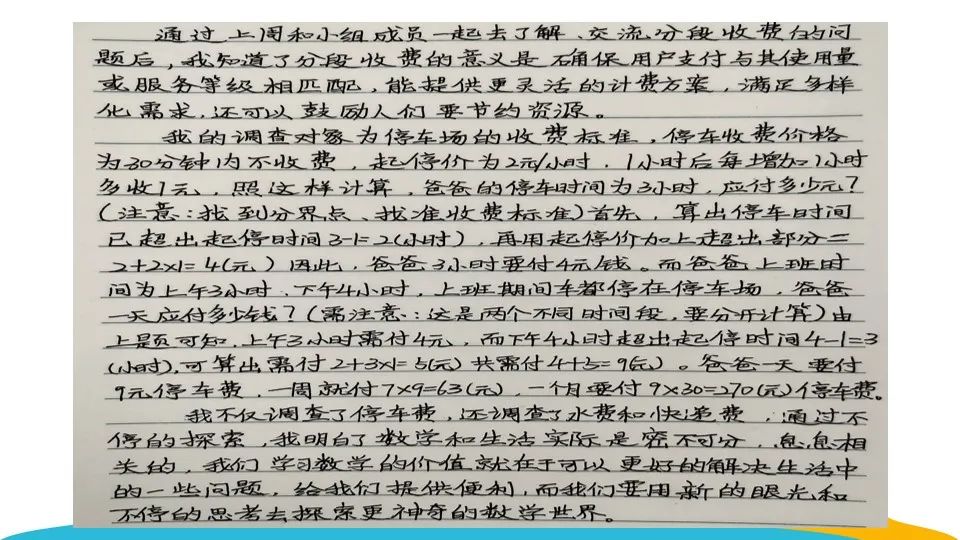 通过上周和小组成员一起去了解、交流分段收费的问
题后，我知道了分段收费的意义是确保用户支付与其使用量
或服务等级相匹配，能提供更灵活的计费方案，满足多样
化需求，还可以鼓励人们要节约资源。
我的调查对象为停车场的收费标准，停车收费价格
为30分钟内不收费，起停价为2元/小时，1小时后每增加1小时
多收1元，照这样计算，爸爸的停车时间为3小时，应付多少元？
（注意：找到分界点、找准收费标准）首先，算出停车时间
已超出起停时间3-1=2（小时），再用起停价加上超出部分=
2+2×1=4（元）因此，爸爸3小时要付4元钱。而爸爸上班时
间为上午3小时、下午4小时，上班期间车都停在停车场，爸爸
一天应付多少钱？（需注意：这是两个不同时间段，要分开计算）由
上题可知，上午3小时需付4元，而下午4小时超出起停时间4-1=3
（小时），可算出需付2+3×1=5（元）共需付4+5=9（元）。爸爸一天要付
9元停车费，一周就付7×9=63（元），一个月要付9×30=270（元）停车费。
我不仅调查了停车费，还调查了水费和快递费，通过不
停的探索，我明白了数学和生活实际是密不可分，息息相
关的，我们学习数学的价值就在于可以更好的解决生活中
的一些问题，给我们提供便利，而我们要用新的眼光和
不停的思考去探索更神奇的数学世界。